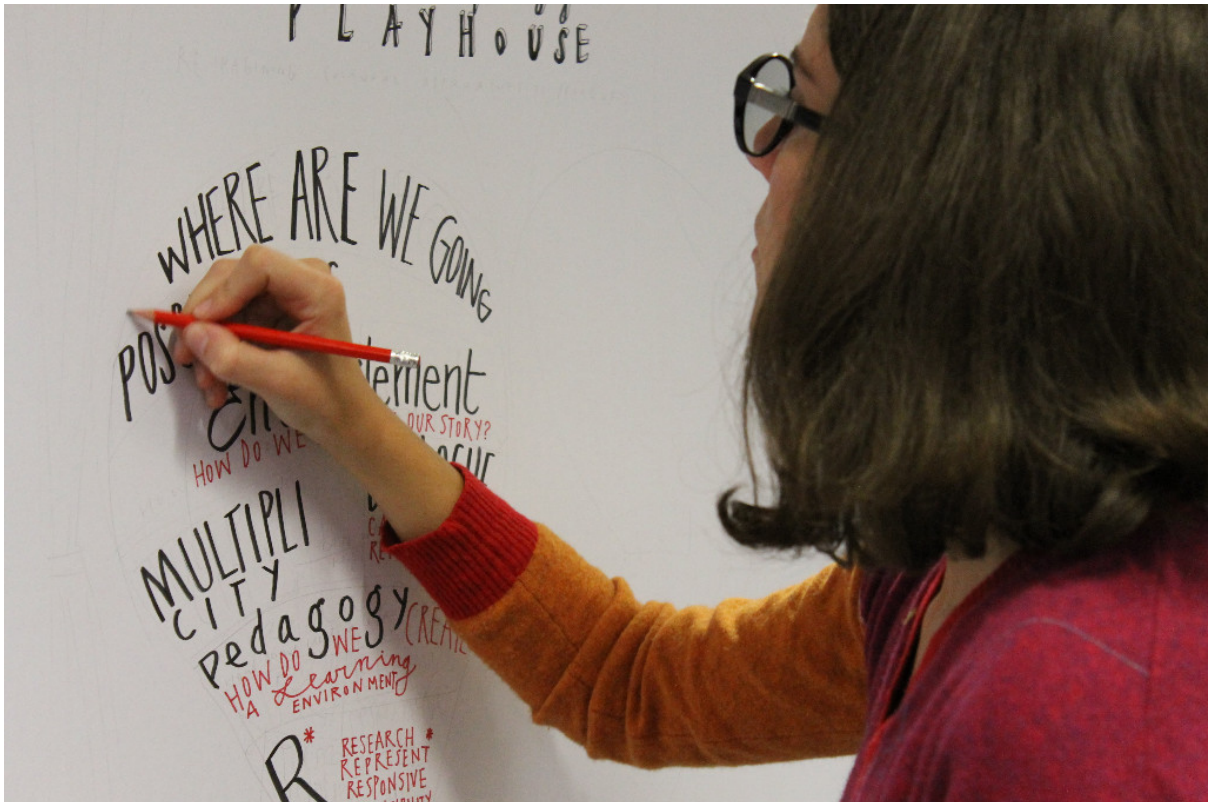 PLAYHOUSE
WHERE ARE WE GOING
HOW DO WE OUR STORY?
MULTIPLI
CITY
pedagogy
HOW DO WE CREATE
A Learning
ENVIRONMENT
R*
RESEARCH *
REPRESENT
RESPONSIVE